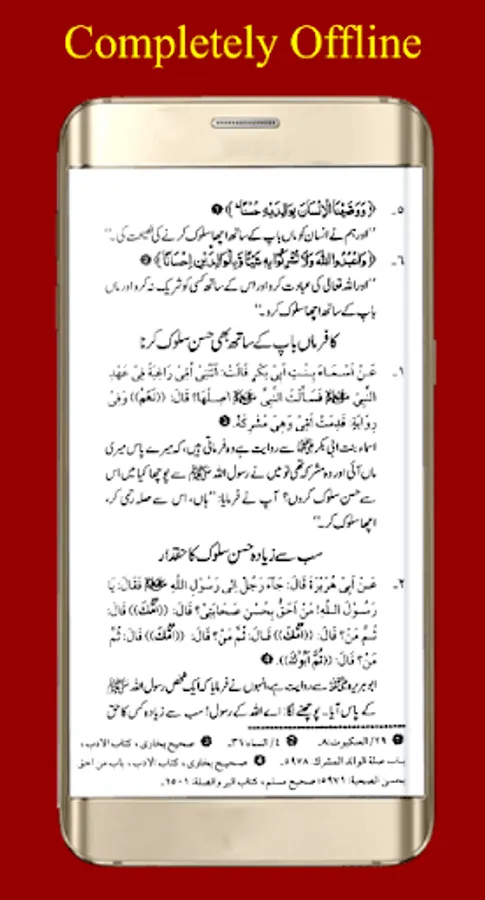 Completely Offline
۵۔ ﴿وَوَصَّيْنَا الْإِنْسَانَ بِوَالِدَيْهِ حُسْنًا﴾ ❶
’’اور ہم نے انسان کو ماں باپ کے ساتھ اچھا سلوک کرنے کی نصیحت کی۔‘‘
۶۔ ﴿وَاعْبُدُوا اللَّهَ وَلَا تُشْرِكُوا بِهِ شَيْئًا وَبِالْوَالِدَيْنِ إِحْسَانًا﴾ ❷
’’اور اللہ تعالی کی عبادت کرو اور اس کے ساتھ کسی کو شریک نہ کرو اور ماں
باپ کے ساتھ اچھا سلوک کرو۔‘‘
کافر ماں باپ کے ساتھ بھی حسن سلوک کرنا
۱۔ عَنْ اَسْمَاءَ بِنْتِ اَبِيْ بَكْرٍ قَالَتْ: اَتَتْنِيْ اُمِّيْ رَاغِبَةً فِيْ عَهْدِ
النَّبِيِّ ﷺ فَسَأَلْتُ النَّبِيَّ ﷺ اَصِلُهَا؟ قَالَ: ((نَعَمْ)) وَفِيْ
رِوَايَةٍ قَدِمَتْ اُمِّيْ وَهِيَ مُشْرِكَةٌ. ❸
اسماء بنت ابی بکر رضی اللہ عنہا سے روایت ہے وہ فرماتی ہیں، کہ میرے پاس میری
ماں آئی اور وہ مشرکہ تھی تو میں نے رسول اللہ ﷺ سے پوچھا کیا میں اس
سے حسن سلوک کروں؟ آپ نے فرمایا: ’’ہاں، اس سے صلہ رحمی کر،
اچھا سلوک کر۔‘‘
سب سے زیادہ حسن سلوک کا حقدار
۲۔ عَنْ اَبِيْ هُرَيْرَةَ قَالَ: جَاءَ رَجُلٌ اِلٰى رَسُوْلِ اللّٰهِ ﷺ فَقَالَ: يَا
رَسُوْلَ اللّٰهِ! مَنْ اَحَقُّ بِحُسْنِ صَحَابَتِيْ؟ قَالَ: ((اُمُّكَ)) قَالَ:
ثُمَّ مَنْ؟ قَالَ: ((اُمُّكَ)) قَالَ: ثُمَّ مَنْ؟ قَالَ: ((اُمُّكَ)) قَالَ: ثُمَّ
مَنْ؟ قَالَ: ((ثُمَّ أَبُوْكَ)). ❹
ابو ہریرہ رضی اللہ عنہ سے روایت ہے، انہوں نے فرمایا کہ ایک شخص رسول اللہ ﷺ
کے پاس آیا۔ پوچھنے لگا: اے اللہ کے رسول! سب سے زیادہ کس کا حق
❶ ۲۹/ العنکبوت:۸۔ ❷ ۴/ النساء:۳۶۔ ❸ صحیح بخاری، کتاب الادب،
باب صلة الوالد المشرك: ۵۹۷۸۔ ❹ صحیح بخاری، کتاب الادب، باب من احق
بحسن الصحبة: ۵۹۷۱؛ صحیح مسلم، کتاب البر والصلة: ۲۵۰۱۔